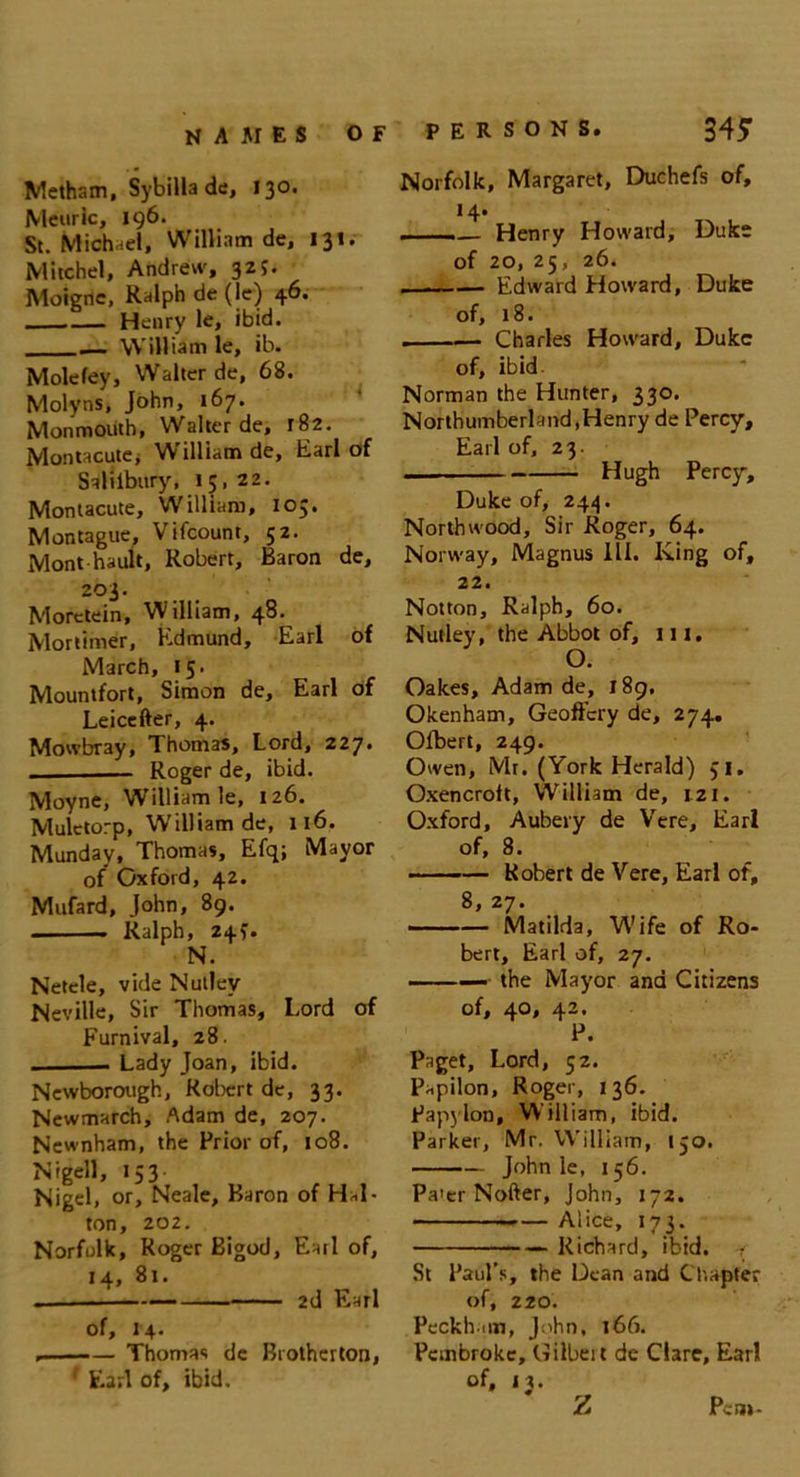 NAMES OF PERSONS. 345
Metham, Sybilla de, 130.
Meuric, 196.
St. Michael, William de, 131.
Mitchel, Andrew, 325.
Moigne, Ralph de (le) 46.
—— Henry le, ibid.
—— William le, ib.
Molesey, Walter de, 68.
Molyns, John, 167.
Monmouth, Walter de, 182.
Montacute, William de, Earl of
Salisbury, 15, 22.
Montacute, William, 105.
Montague, Viscount, 52.
Mont-hault, Robert, Baron de,
203.
Moretein, William, 48.
Mortimer, Edmund, Earl of
March, 15.
Mountfort, Simon de, Earl of
Leicester, 4.
Mowbray, Thomas, Lord, 227.
—— Roger de, ibid.
Moyne, William le, 126.
Muletorp, William de, 116.
Munday, Thomas, Esq; Mayor
of Oxford, 42.
Musard, John, 89.
—— Ralph, 245.
N.
Netele, vide Nutley
Neville, Sir Thomas, Lord of
Furnival, 28.
—— Lady Joan, ibid.
Newborough, Robert de, 33.
Newmarch, Adam de, 207.
Newnham, the Prior of, 108.
Nigell, 153.
Nigel, or, Neale, Baron of Hal-
ton, 202.
Norfolk, Roger Bigod, Earl of,
14, 81.
—— —— 2d Earl
of, 14.
—— Thomas de Brotherton,
Earl of, ibid.
Norfolk, Margaret, Duchess of,
14.
—— Henry Howard, Duke
of 20, 25, 26.
—— Edward Howard, Duke
of, 18.
—— Charles Howard, Duke
of, ibid.
Norman the Hunter, 330.
Northumberland, Henry de Percy,
Earl of, 23.
—— —— Hugh Percy,
Duke of, 244.
Northwood, Sir Roger, 64.
Norway, Magnus III. King of,
22.
Notton, Ralph, 60.
Nutley, the Abbot of, 111.
O.
Oakes, Adam de, 189.
Okenham, Geoffery de, 274.
Osbert, 249.
Owen, Mr. (York Herald) 51.
Oxencroft, William de, 121.
Oxford, Aubery de Vere, Earl
of, 8.
—— Robert de Vere, Earl of,
8, 27.
—— Matilda, Wife of Ro-
bert, Earl of, 27.
—— the Mayor and Citizens
of, 40, 42.
P.
Paget, Lord, 52.
Papilon, Roger, 136.
Papylon, William, ibid.
Parker, Mr. William, 150.
—— John le, 156.
Pater Noster, John, 172.
—— —— Alice, 173.
—— —— Richard, ibid.
St Paul's, the Dean and Chapter
of, 220.
Peckham, John, 166.
Pembroke, Gilbert de Clare, Earl
of, 13.
Z Pem-